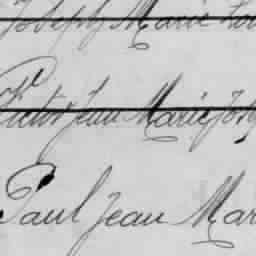 Joseph Marie Lou
Victor Jean Marie Jos
Paul Jean Mar